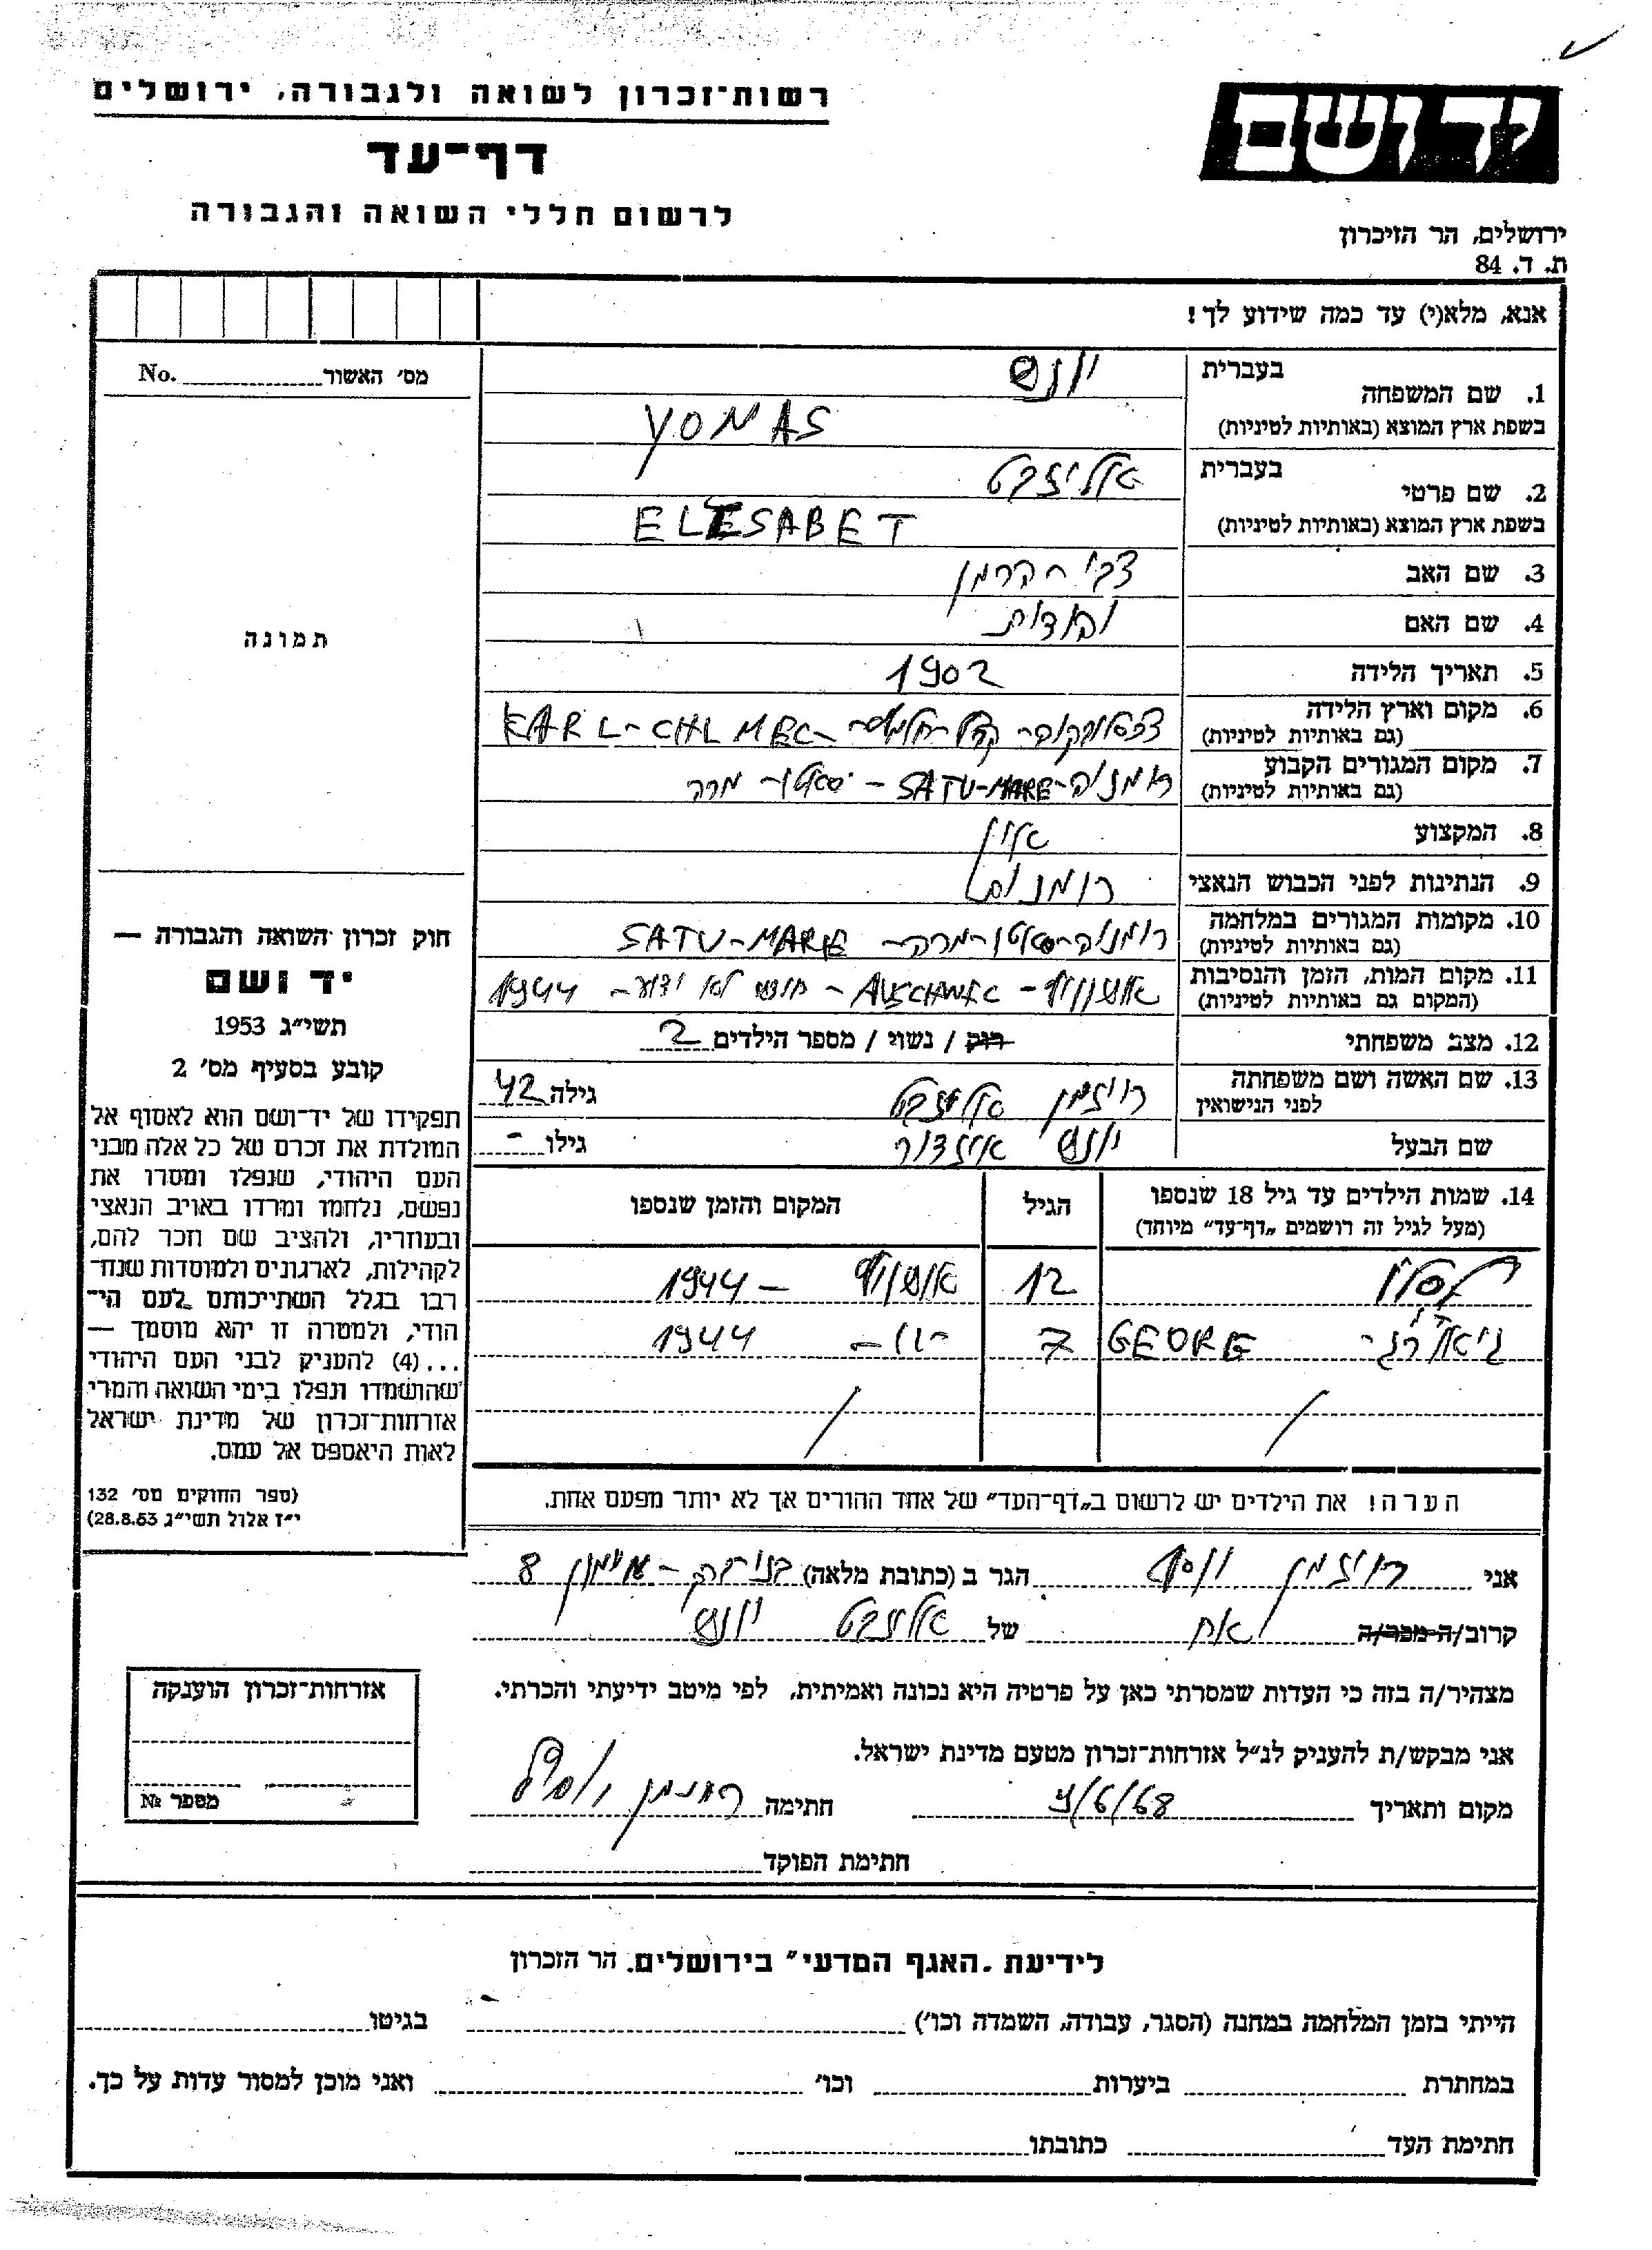 רשות־זכרון לשואה ולגבורה, ירושלים
דף־עד
לרשום חללי השואה והגבורה
יד ושם
ירושלים, הר הזיכרון
ת. ד. 84
אנא, מלא(י) עד כמה שידוע לך!
מס׳ האשור No.
1. שם המשפחה בעברית יונס
בשפת ארץ המוצא (באותיות לטיניות) YONAS
2. שם פרטי בעברית אליזבט
בשפת ארץ המוצא (באותיות לטיניות) ELESABET
3. שם האב צבי הרמן
4. שם האם
5. תאריך הלידה 1902
6. מקום וארץ הלידה
(גם באותיות לטיניות) KARL-CHLMEC
7. מקום המגורים הקבוע רומניה - SATU-MARE - סאטו - מרה
(גם באותיות לטיניות)
8. המקצוע אין
9. הנתינות לפני הכבוש הנאצי
10. מקומות המגורים במלחמה רומניה - סאטו - מרה - SATU-MARE
(גם באותיות לטיניות)
11. מקום המות, הזמן והנסיבות אושוויץ - חודש לא ידוע - 1944
(המקום גם באותיות לטיניות)
12. מצב משפחתי רוק / נשוי / מספר הילדים 2
13. שם האשה ושם משפחתה רוזמן אליזבט גילה 42
לפני הנישואין
שם הבעל יונס איזדור גילו -
תמונה
חוק זכרון השואה והגבורה —
יד ושם
תשי״ג 1953
קובע בסעיף מס׳ 2
תפקידו של יד־ושם הוא לאסוף אל
המולדת את זכרם של כל אלה מבני
העם היהודי, שנפלו ומסרו את
נפשם, נלחמו ומרדו באויב הנאצי
ובעוזריו, ולהציב שם וזכר להם,
לקהילות, לארגונים ולמוסדות שנח־
רבו בגלל השתייכותם לעם הי־
הודי, ולמטרה זו יהא מוסמך —
...(4) להעניק לבני העם היהודי
שהושמדו ונפלו בימי השואה והמרי
אזרחות־זכרון של מדינת ישראל
לאות היאספם אל עמם.
(ספר החוקים מס׳ 132
י״ז אלול תשי״ג 28.8.53)
14. שמות הילדים עד גיל 18 שנספו הגיל המקום והזמן שנספו
(מעל לגיל זה רושמים „דף־עד״ מיוחד)
12 אושוויץ - 1944
GEORG 7 -"- 1944
הערה! את הילדים יש לרשום ב„דף־העד״ של אחד ההורים אך לא יותר מפעם אחת.
אני רוזמן יוסף הגר ב (כתובת מלאה) בני ברק - 8
קרוב/ה מכר/ה אח של אליזבט יונס
מצהיר/ה בזה כי העדות שמסרתי כאן על פרטיה היא נכונה ואמיתית, לפי מיטב ידיעתי והכרתי.
אני מבקש/ת להעניק לנ״ל אזרחות־זכרון מטעם מדינת ישראל.
מקום ותאריך 9/6/68 חתימה רוזמן יוסף
חתימת הפוקד
אזרחות־זכרון הוענקה
מספר №
לידיעת „האגף המדעי״ בירושלים, הר הזכרון
הייתי בזמן המלחמה במחנה (הסגר, עבודה, השמדה וכו׳) בגיטו
במחתרת ביערות וכו׳ ואני מוכן למסור עדות על כך.
חתימת העד כתובתו